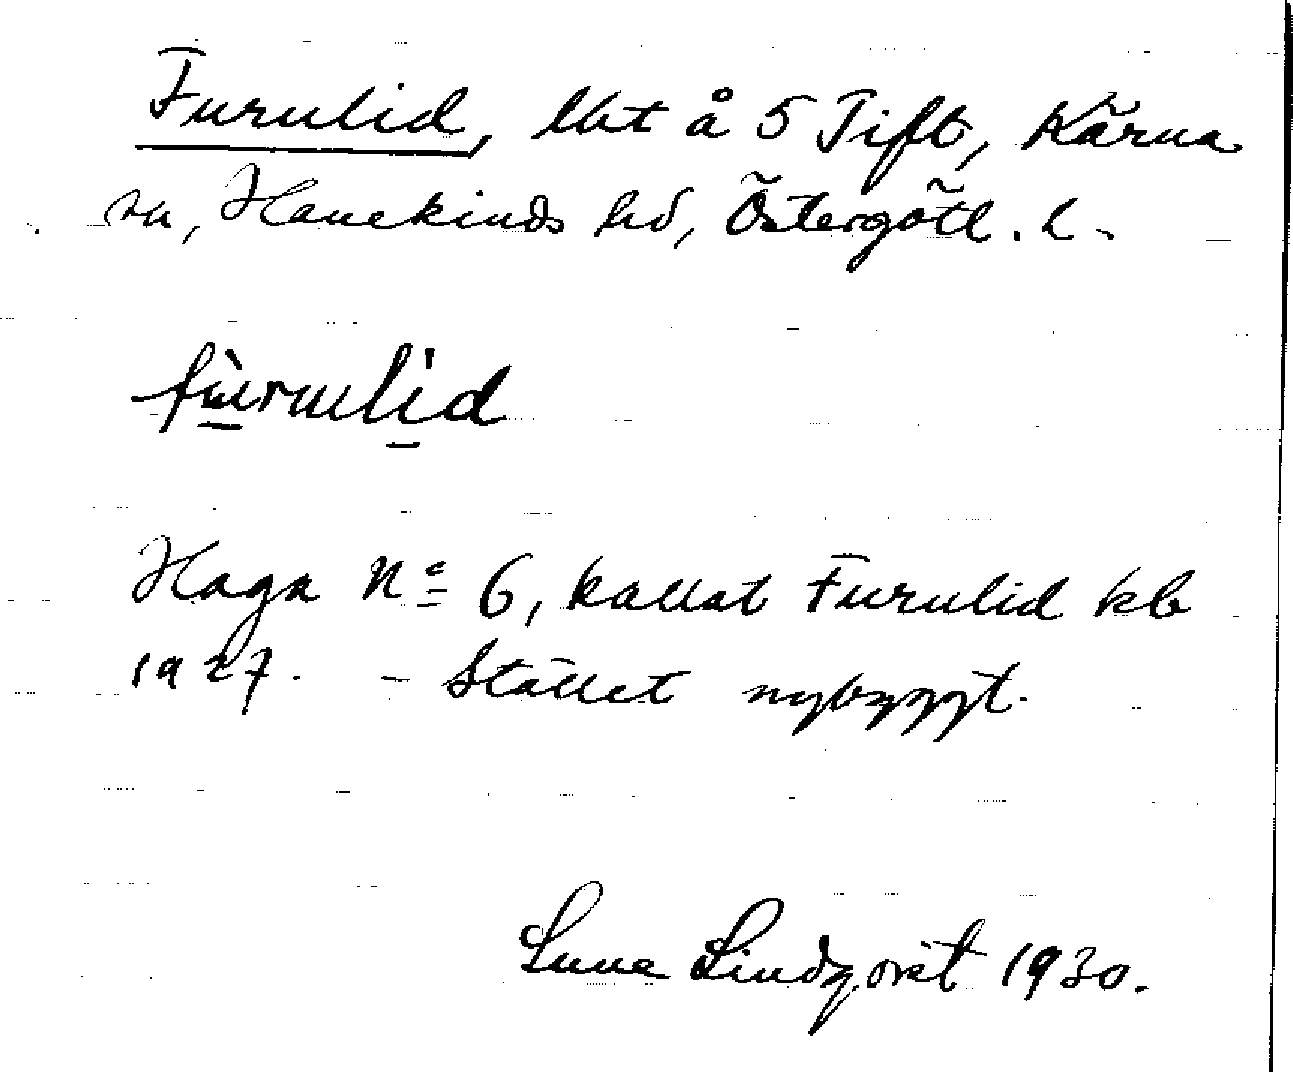 Furulid, lht å 5 Tift, Kärna
sn, Hanekinds hd, Östergötl. l.
fùrulid
Haga No 6, kallat Furulid kb
1927. – Stället nybyggt.
Sune Lindqvist 1930.